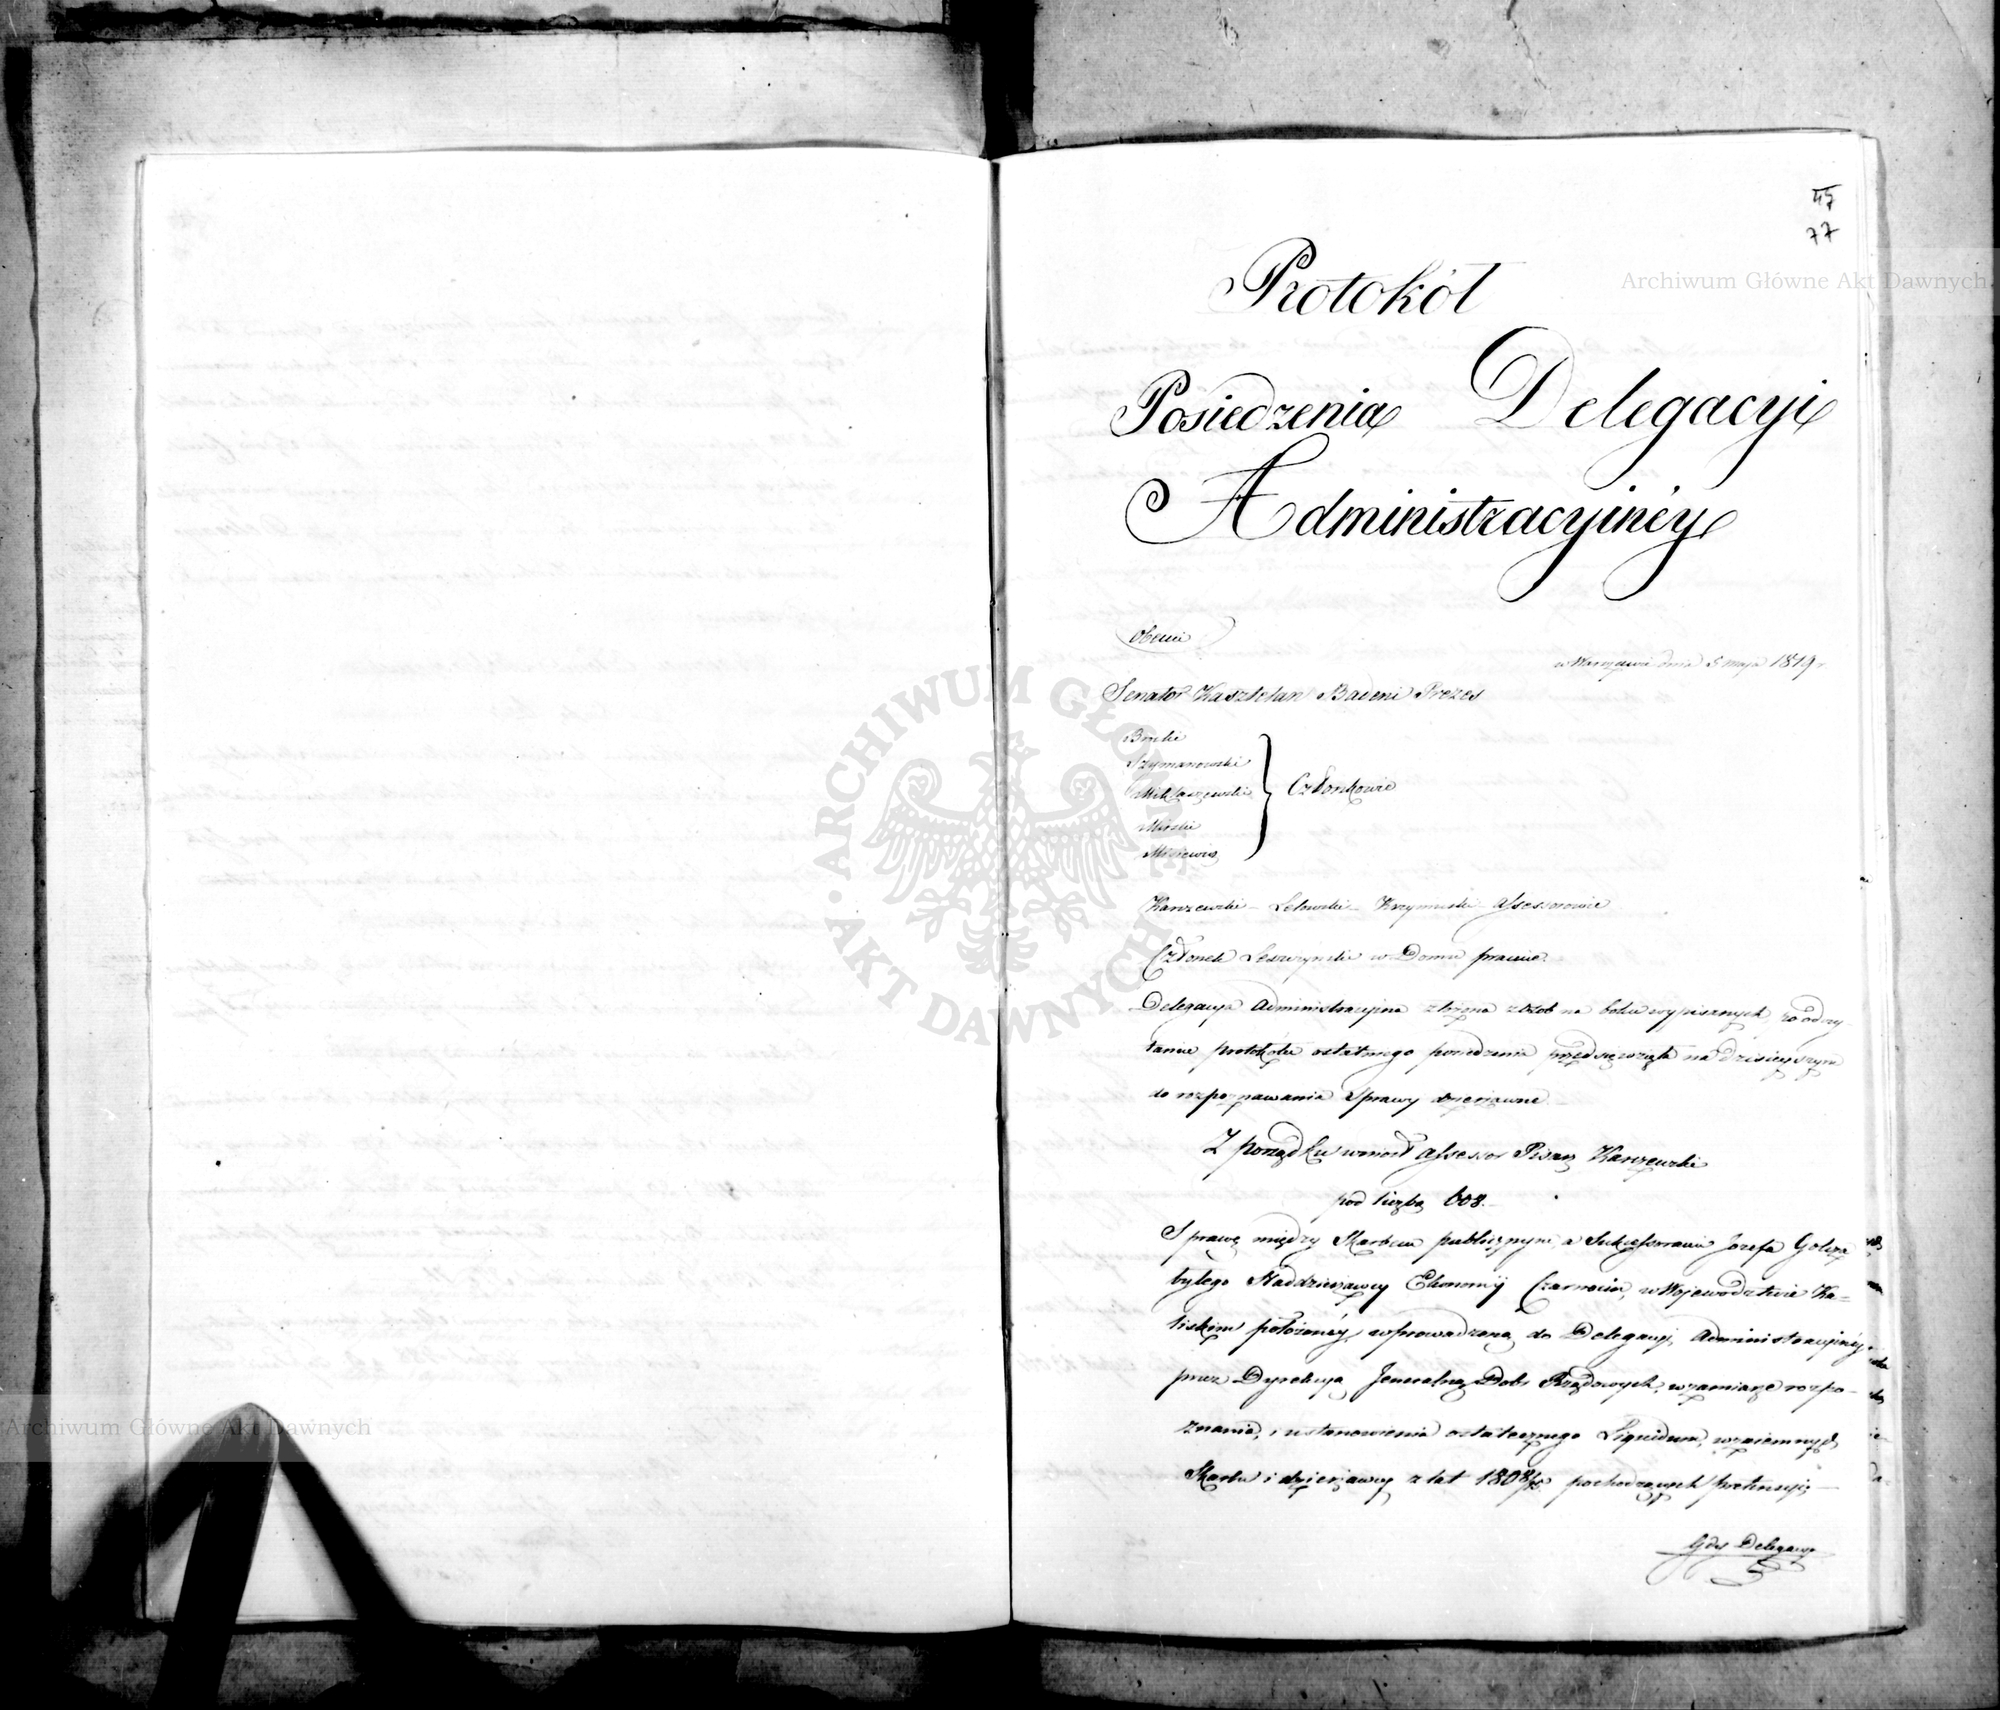 47
77
Protokół
Posiedzenia Delegacyi
Administracyinéy
Obecni
w Warszawie dnia 5 maja 1819 r
Senator Kasztelan Badeni Prezes
Szymanowski
Miklaszewski
Członkowie
Karszewski - Letowski - Krzymuski assessorowie
Członek Leszczynski w Domu pracuie.
Delegacya Administracyina złożona z osób na boku wypisanych, po odczy-
taniu protokółu ostatniego posiedzenia przedsięwzięła na dzisieyszym
do rozpoznawania Sprawy dzierżawne.
Z porządku wniosł assessor Pisarz Karszewski
pod liczbą 608.
Sprawę między Skarbem publicznym, a Sukcessorami Jozefa Golcza
byłego Naddzierżawcy Ekonomij Czarnocin, w Wojewodztwie Ka=
liskim położonéy, wprowadzoną do Delegacyi Administracyinéy
przez Dyrekcyą Jeneralną Dobr Rządowych, w zamiarze rozpo-
znania, i ustanowienia ostatecznego Liquidum, wzaiemnych
Skarbu i dzierżawcy z lat 1808/ pochodzących pretensyi, —
Gdy Delegacya
Archiwum Główne Akt Dawnych
ARCHIWUM GŁÓWNE AKT DAWNYCH
Archiwum Główne Akt Dawnych